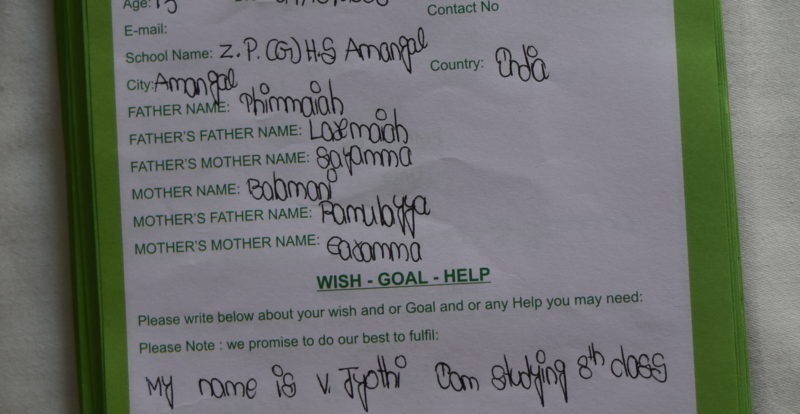 Age: 13
Contact No
E-mail:
School Name: Z.P.(G)H.S Amangal
City: Amangal Country: India
FATHER NAME: Thimmaiah
FATHER'S FATHER NAME: Laxmaiah
FATHER'S MOTHER NAME: Sayamma
MOTHER NAME: Balamani
MOTHER'S FATHER NAME: Ramulayya
MOTHER'S MOTHER NAME:
WISH - GOAL - HELP
Please write below about your wish and or Goal and or any Help you may need:
Please Note : we promise to do our best to fulfil:
My name is V. Jyothi Iam studying 8th class